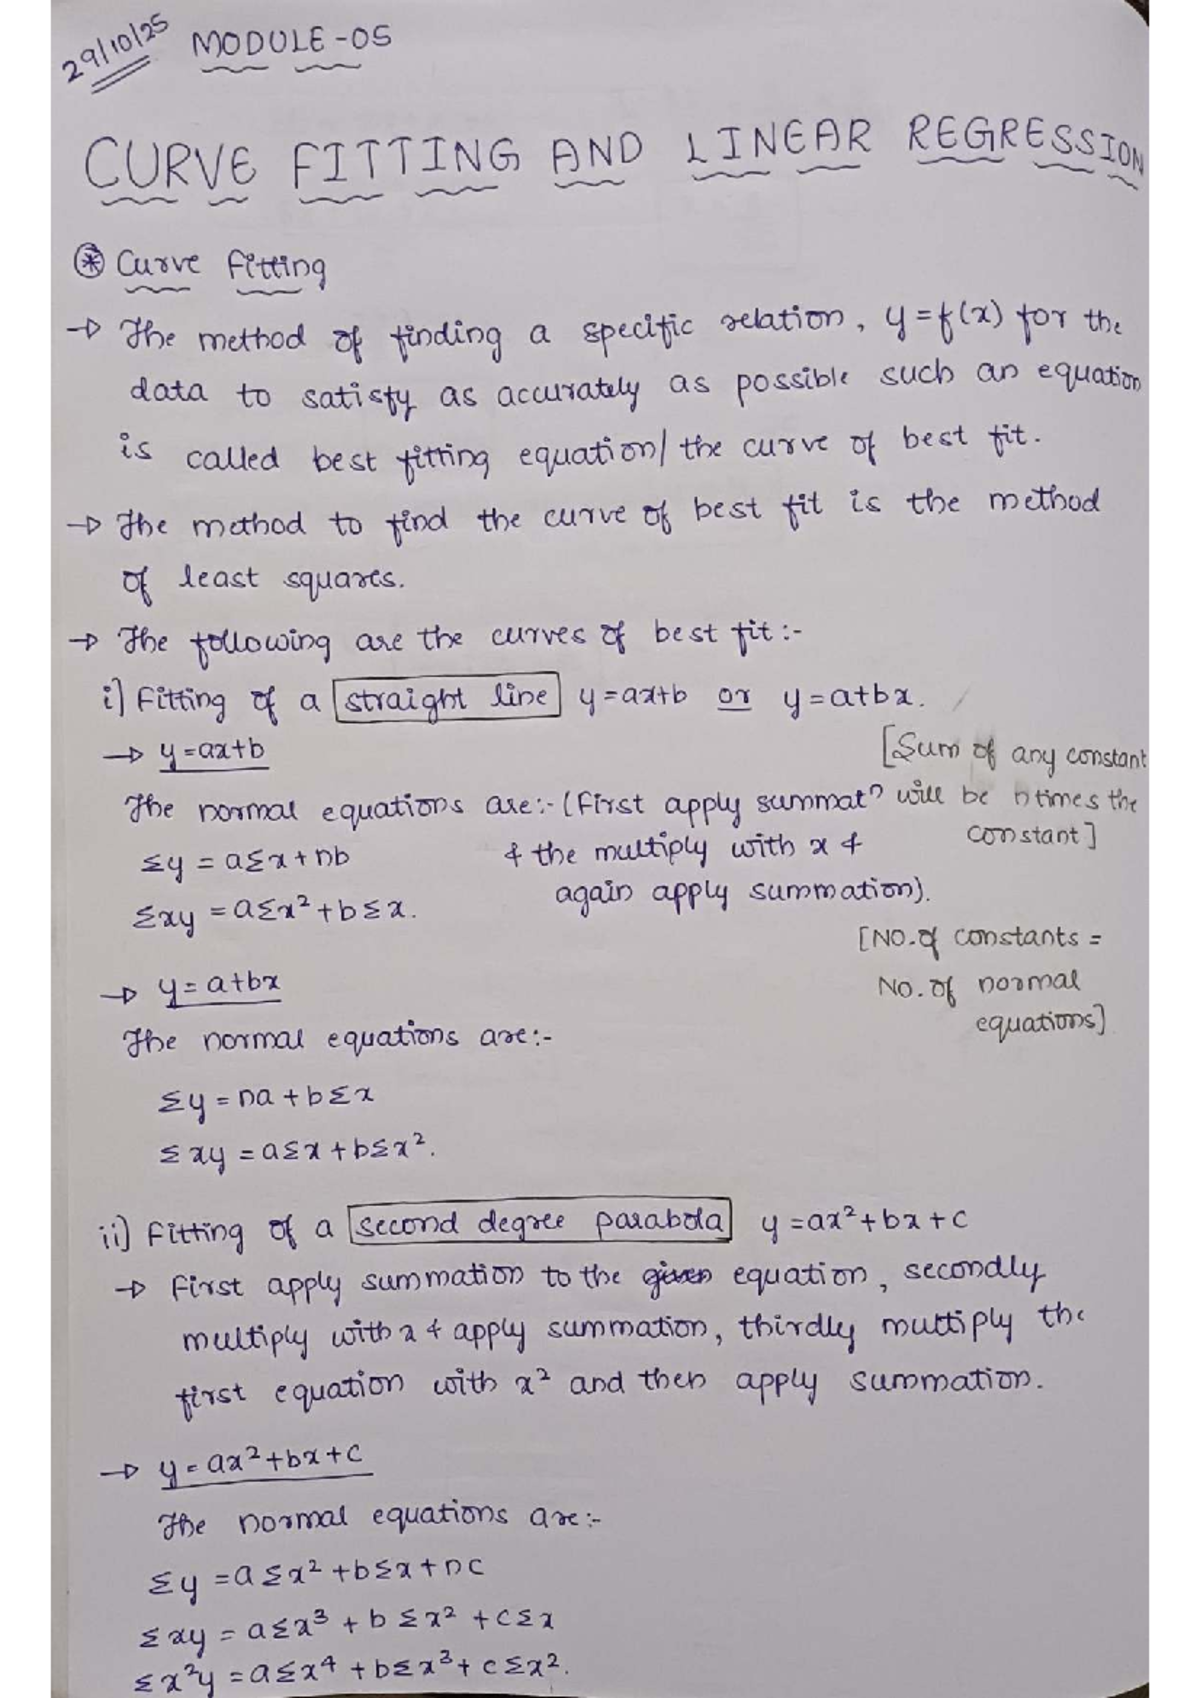 29/10/25 MODULE-05
CURVE FITTING AND LINEAR REGRESSION
⊛ Curve Fitting
→ The method of finding a specific relation, y=f(x) for the
data to satisfy as accurately as possible such an equation
is called best fitting equation/ the curve of best fit.
→ The method to find the curve of best fit is the method
of least squares.
→ The following are the curves of best fit:-
i] Fitting of a straight line y=ax+b or y=a+bx.
→ y=ax+b
[Sum of any constant
The normal equations are:- (First apply summatⁿ will be n times the
Σy = aΣx+nb & the multiply with x & constant]
Σxy = aΣx²+bΣx. again apply summation).
[NO. of constants =
→ y=a+bx No. of normal
The normal equations are:- equations]
Σy = na + bΣx
Σxy = aΣx + bΣx².
ii] Fitting of a second degree parabola y=ax²+bx+c
→ First apply summation to the given equation, secondly
multiply with x & apply summation, thirdly multiply the
first equation with x² and then apply summation.
→ y=ax²+bx+c
The normal equations are:-
Σy = aΣx² + bΣx + nc
Σxy = aΣx³ + bΣx² + cΣx
Σx²y = aΣx⁴ + bΣx³ + cΣx².